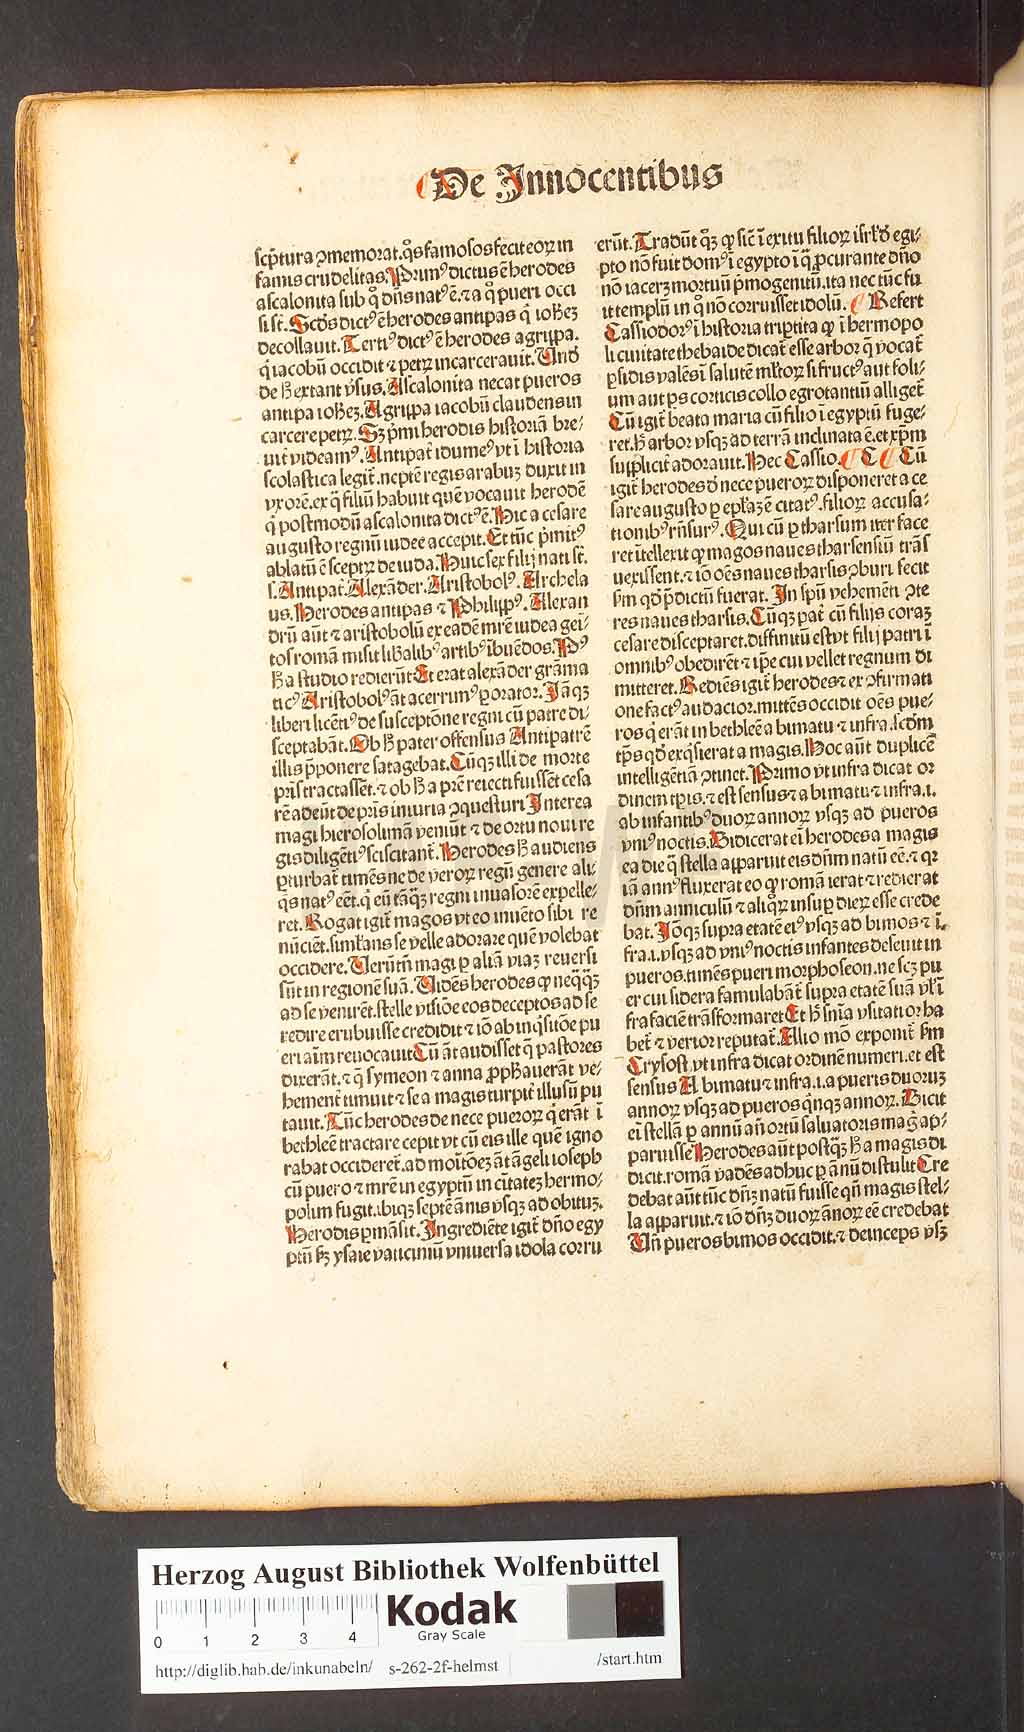 De Innocentibus
scp̄tura ꝯmemorat. q̊s famosos fecit eoꝝ in
famis crudelitas. Prim⁹ dictus ē herodes
ascalonita sub q̊ dn̄s nat⁹ ē. ⁊ a q̊ pueri occi
si st̄. Scd̄s dict⁹ ē herodes antipas q̇ ioh̄eꝫ
decollauit. Terti⁹ dict⁹ ē herodes agrippa.
q̇ iacobū occidit ⁊ petꝝ incarcerauit. Vnd̄
de h̄ extant v̄sus. Ascalonita necat pueros
antipa ioh̄eꝫ. Agrippa iacobū claudens in
carcere petꝝ. Sꝫ p̄mi herodis historiā bre⸗
uit̄ videam⁹. Antipat̄ idume⁹ vt ī historia
scolastica legit̄. neptē regis arabuꝫ duxit in
vxorē. ex q̄ filiū habuit quē vocauit herodē
q̇ postmodū ascalonita dict⁹ ē. Hic a cesare
augusto regnū iudee accepit. Et tūc p̄mit⁹
ablatū ē sceptꝝ de iuda. Huic sex filij nati st̄.
s. Antipat̄. Alexāder. Aristobol⁹. Archela
us. Herodes antipas ⁊ Philipp⁹. Alexan
drū aūt ⁊ aristobolū ex eadē mr̄e iudea gei⸗
tos romā misit lib̄alib⁹ artib⁹ ībuēdos. P⁹
h̄ a studio redierūt Et erat alexāder grāma
tic⁹ Aristobol⁹ āt acerrim⁹ ꝑorator. Jāqꝫ
liberi licēti⁹ de susceptōne regni cū patre di⸗
sceptabāt. Ob h̄ pater offensus Antipatrē
illis p̄ponere satagebat. Cūqꝫ illi de morte
pr̄is tractassēt. ⁊ ob h̄ a pr̄e reiecti fuissēt cesa
rē adeūt de pr̄is iniuria ꝯquesturi Interea
magi hierosolimā veniūt ⁊ de ortu noui re
gis diligēti⁹ sciscitant̄. Herodes h̄ audiens
ꝑturbat̄ timēs ne de veroꝝ regū genere ali⸗
q̇s nat⁹ eēt. q̇ eū tāq̄ꝫ regni inuasorē expelle⸗
ret. Rogat igit̄ magos vt eo inuēto sibi re
nūciēt. simĺans se velle adorare quē volebat
occidere. Verūtn̄ magi ꝑ aliā viaꝫ reuersi
sūt in regionē suā. Vidēs herodes ꝙ neq̄q̄ꝫ
ad se venirēt. stelle visiōe eos deceptos ad se
redire erubuisse credidit ⁊ iō ab inq̇sitōe pu
eri aīm reuocauit Cū āt audisset q̄ pastores
dixerāt. ⁊ q̄ symeon ⁊ anna ꝓph̄auerāt ve⸗
hement̄ timuit ⁊ se a magis turpit̄ illusū pu
tauit. Tūc herodes de nece pueroꝝ q̇ erāt ī
bethleē tractare cepit vt cū eis ille quē igno
rabat occideret̄. ad moītōeꝫ āt āgeli ioseph
cū puero ⁊ mr̄e in egyptū in ciuitateꝫ hermo⸗
polim fugit. ibiqꝫ septē ānis vsqꝫ ad obituꝫ.
Herodis ꝑmāsit. Ingrediēte igit̄ dn̄o egy
ptū ẜꝫ ysaie vaticiniū vniuersa idola corru
erūt. Tradūt q̊ꝫ ꝙ sic̄ ī exitu filioꝝ isrl̄ d̄ egi⸗
pto nō fuit dom⁹ ī egypto ī q̄ ꝓcurante dn̄o
nō iaceꝝ mortuū p̄mogenitū. ita nec tūc fu
it templū in q̊ nō corruisset idolū. Refert
Cassiodor⁹ ī historia tripertita ꝙ ī hermopo
li ciuitate thebaide dicat̄ esse arbor q̄ vocat̄
ꝑsidis valēs ī salutē ml̄toꝝ si fruct⁹ aut foli⸗
um aut ps corticis collo egrotantiū alliget̄
Cū igit̄ beata maria cū filio ī egyptū fuge⸗
ret. h̄ arbor vsqꝫ ad terrā inclinata ē. et xp̄m
suppliciť adorauit. Hec Cassio. C Cū
igit̄ herodes d̄ nece pueroꝝ disponeret a ce
sare augusto ꝑ epĺaꝫ ē citat⁹. filioꝝ accusa⸗
tionib⁹ rn̄sur⁹. Qui cū ꝑ tharsum iter face
ret ītellexit ꝙ magos naues tharsensiū trās
uexissent. ⁊ iō oēs naues tharsis ꝯburi fecit
ẜm qd̄ p̄dictū fuerat. In spū vehemēti ꝯte
res naues tharsis. Cūqꝫ pat̄ cū filijs coraꝫ
cesare disceptaret. diffinitū est vt filij patri ī
omnib⁹ obedirēt ⁊ ip̄e cui vellet regnum di
mitteret. Rediēs igit̄ herodes ⁊ ex ꝯfirmati
one fact⁹ audacior. mittēs occidit oēs pue⸗
ros q̇ erāt in bethleē a bimatu ⁊ infra. scd̄m
tp̄s qd̄ exq̇sierat a magis. Hoc aūt duplicē
intelligētiā ꝯtinet. Primo vt infra dicat or
dinem tp̄is. ⁊ est sensus ⁊ a bimatu ⁊ infra. i.
ab infantib⁹ duoꝝ annoꝝ vsqꝫ ad pueros
vni⁹ noctis. Didicerat eī herodes a magis
ea die q̄ stella apparuit eis dn̄m natū eē. ⁊ qꝛ
iā ann⁹ fluxerat eo ꝙ romā ierat ⁊ redierat
dn̄m anniculū ⁊ aliq̊ꝝ insuꝑ dieꝝ esse crede
bat. Jōqꝫ supra etatē ei⁹ vsqꝫ ad bimos ⁊ ī⸗
fra. i. vsqꝫ ad vni⁹ noctis infantes deseuit in
pueros. timēs pueri morphoseon. ne scꝫ pu
er cui sidera famulabāt̄ supra etatē suā vl̄ ī
fra faciē trāsformaret Et h̄ sn̄ia vsitatior ha
bet̄ ⁊ verior reputat̄. Alio mō exponit̄ ẜm
Crysost. vt infra dicat ordinē numeri. et est
sensus A bimatu ⁊ infra. i. a pueris duoruꝫ
annoꝝ vsqꝫ ad pueros q̇nqꝫ annoꝝ. Dicit
eī stellā ꝑ annū an̄ ortū saluatoris maġ ap⸗
paruisse Herodes aūt postq̄ꝫ h̄ a magis di
dicit. romā vadēs adhuc ꝑ ānū distulit Cre
debat aūt tūc dn̄ꝫ natū fuisse qn̄ magis stel⸗
la apparuit. ⁊ iō dn̄ꝫ duoꝝ ānoꝝ eē credebat
Vn̄ pueros bimos occidit. ⁊ deinceps vsꝫ
Herzog August Bibliothek Wolfenbüttel
Kodak
Gray Scale
0 1 2 3 4
http://diglib.hab.de/inkunabeln/ s-262-2f-helmst /start.htm